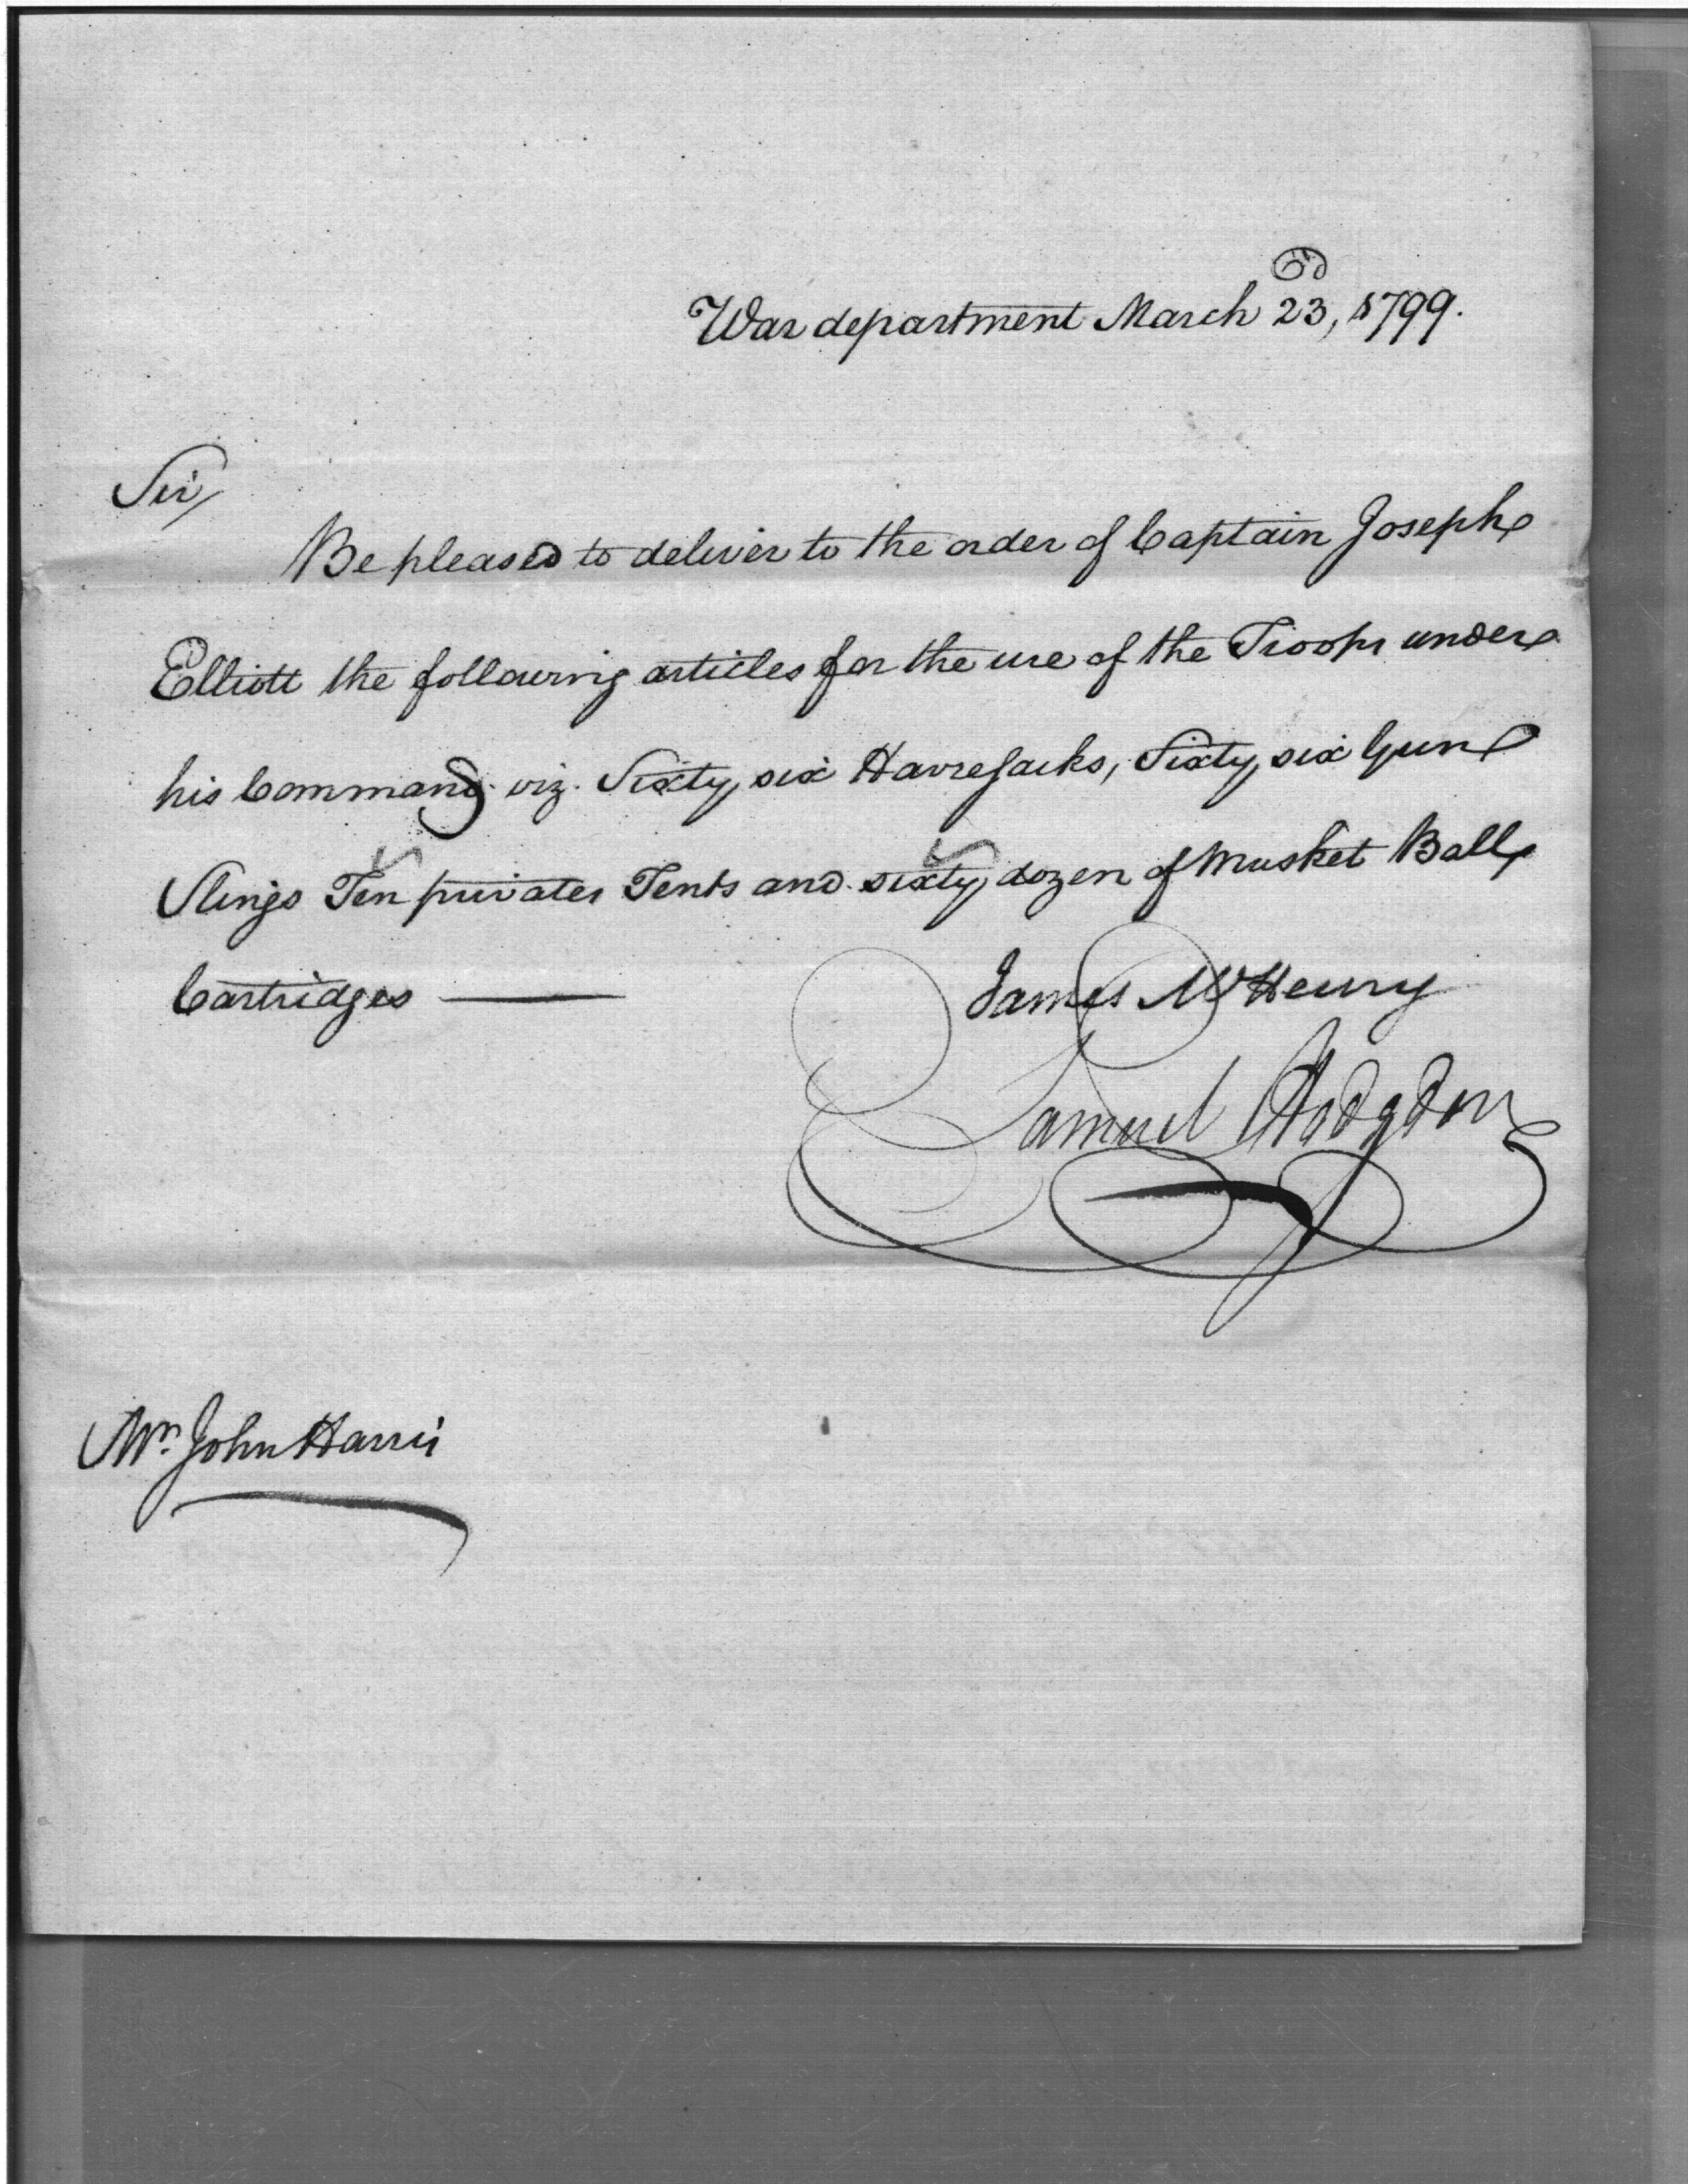 War department March 23d, 1799.
Sir,
Be pleased to deliver to the order of Captain Joseph
Elliott the following articles for the use of the Troops under
his Command viz. Sixty six Havresacks, Sixty six Gun
Slings Ten privates Tents and sixty dozen of Musket Ball
Cartridges ———
James McHenry
Samuel Hodgdon
Mr. John Harris